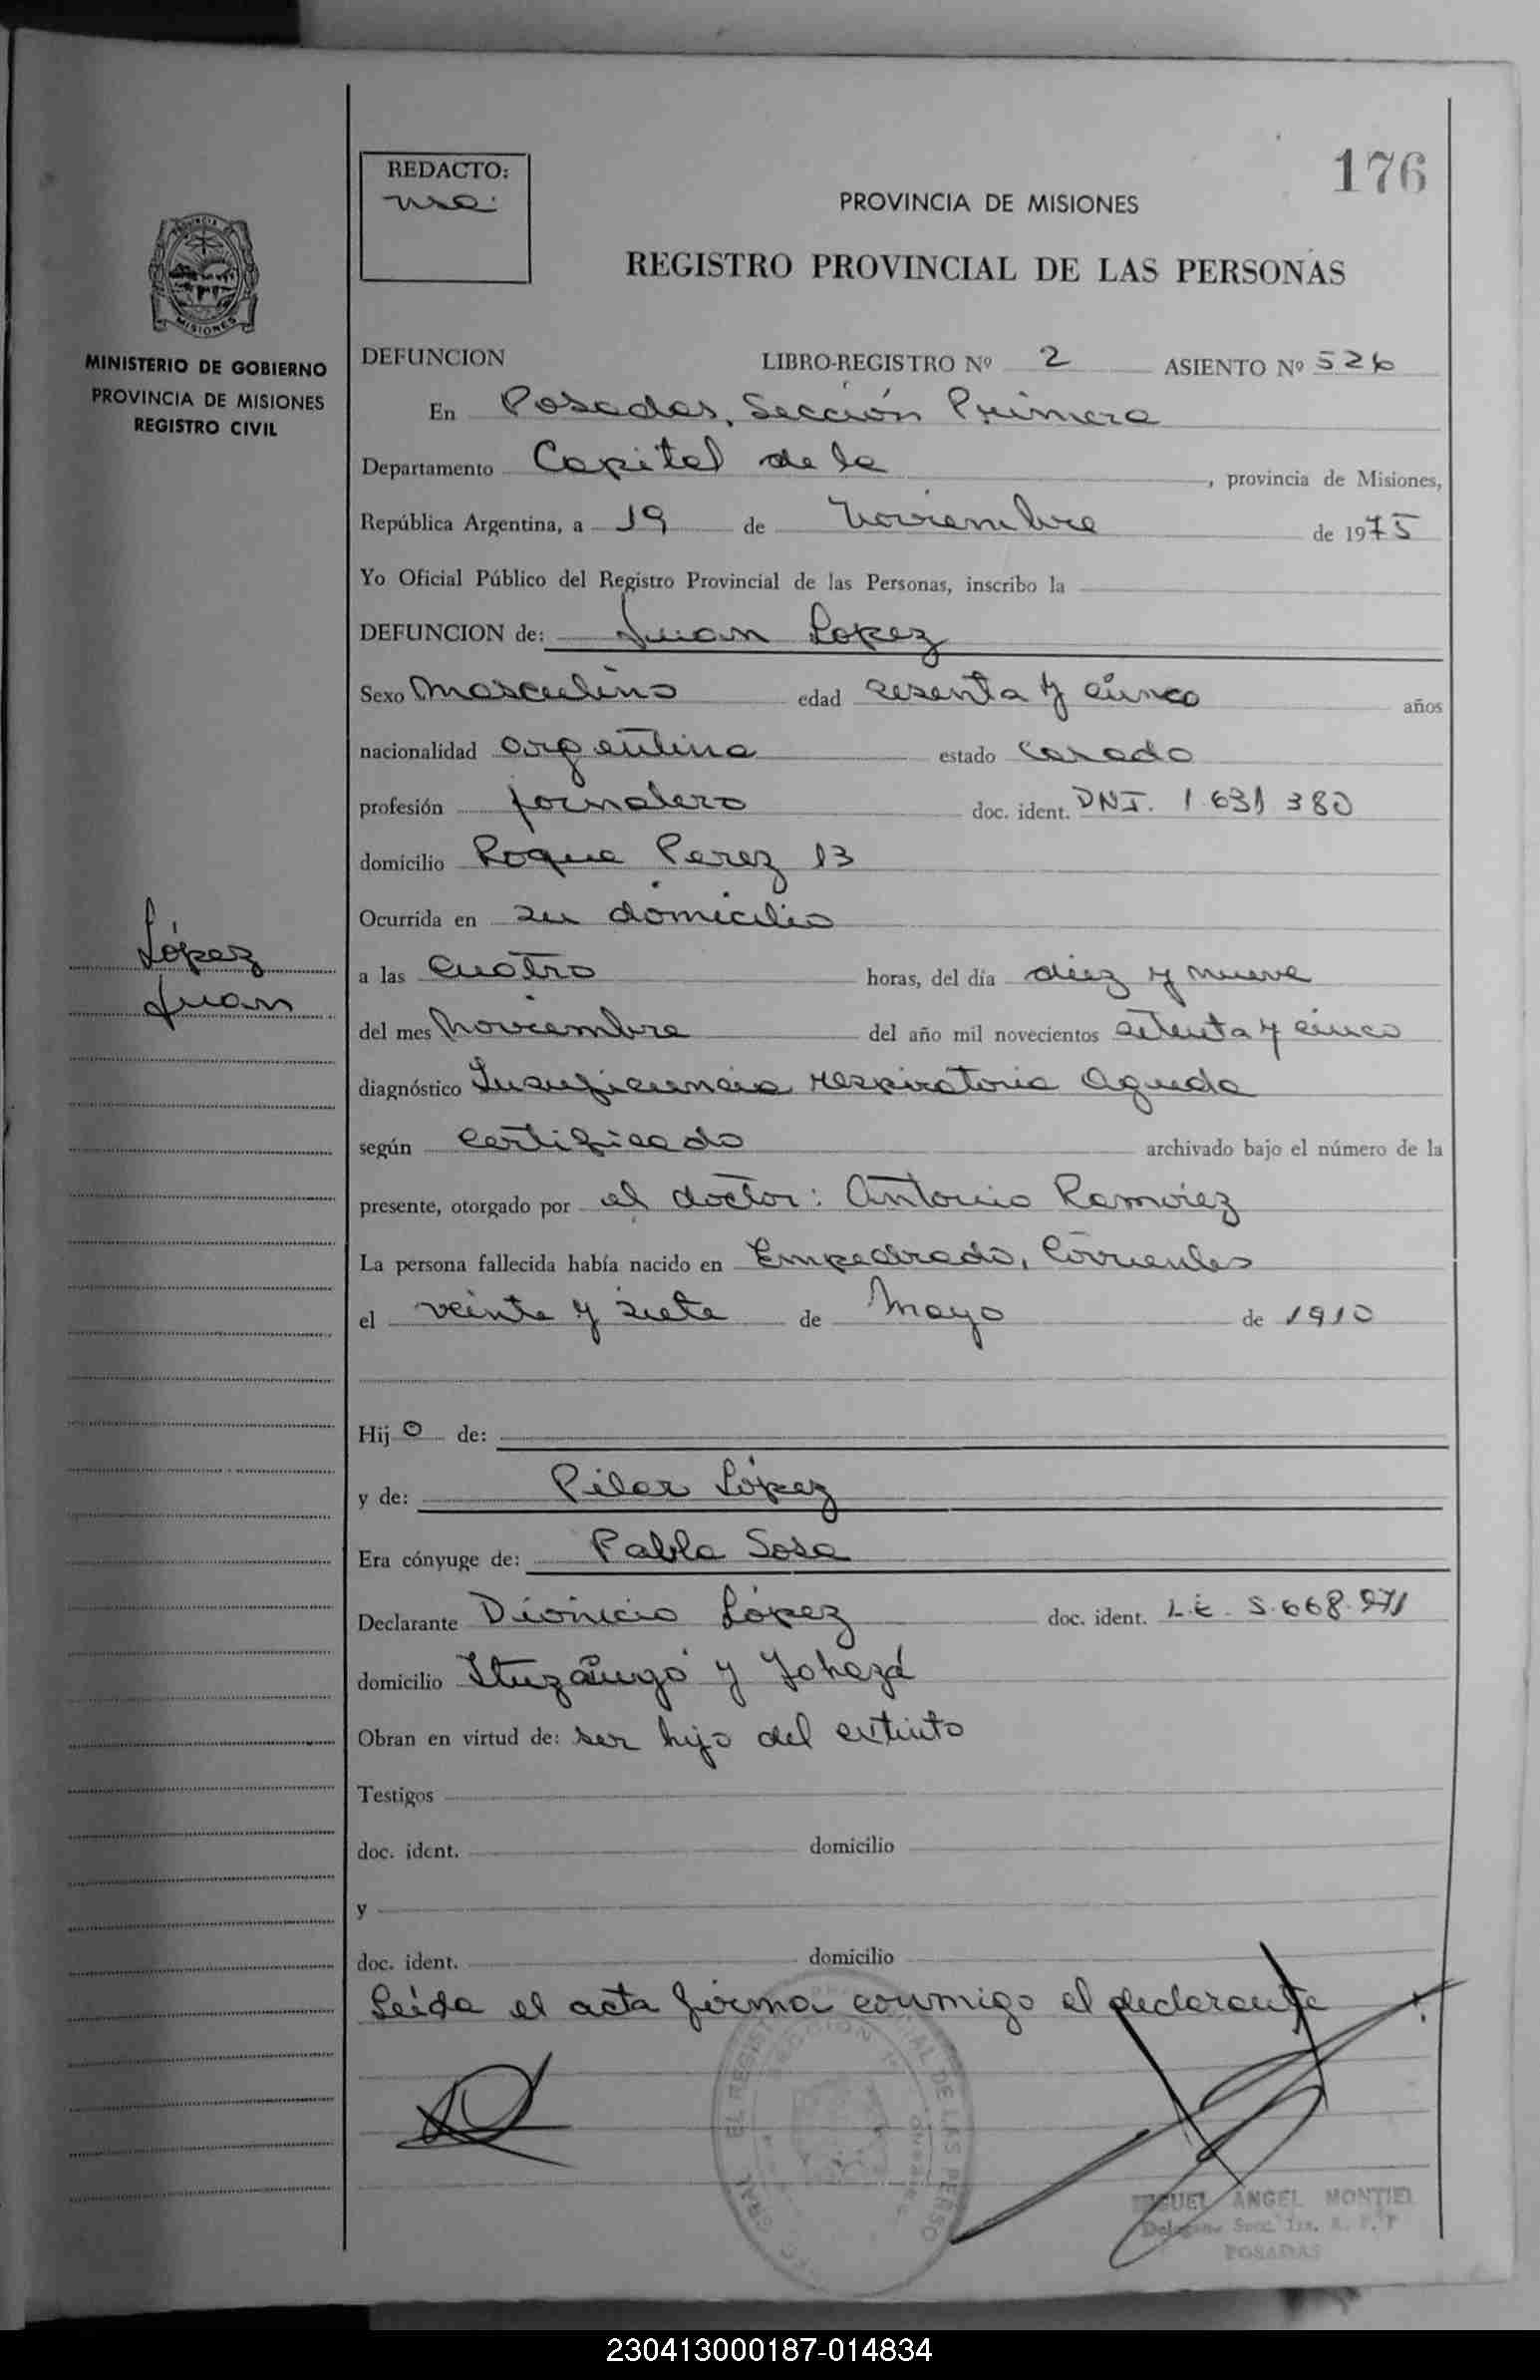 176
REDACTO:
PROVINCIA DE MISIONES
REGISTRO PROVINCIAL DE LAS PERSONAS
MISIONES
MINISTERIO DE GOBIERNO
PROVINCIA DE MISIONES
REGISTRO CIVIL
DEFUNCION LIBRO-REGISTRO Nº 2 ASIENTO Nº 526
En Posadas, Sección Primera
Departamento Capital de la, provincia de Misiones,
República Argentina, a 19 de Noviembre de 1975
Yo Oficial Público del Registro Provincial de las Personas, inscribo la
DEFUNCION de: Juan Lopez
Sexo Masculino edad sesenta y cinco años
nacionalidad argentina estado casado
profesión jornalero doc. ident. DNI. 1.631 380
domicilio Roque Perez 13
Ocurrida en su domicilio
López
a las cuatro horas, del día diez y nueve
Juan
del mes Noviembre del año mil novecientos setenta y cinco
diagnóstico Insuficiencia respiratoria aguda
según certificado archivado bajo el número de la
presente, otorgado por el doctor: Antonio Ramirez
La persona fallecida había nacido en Empedrado, Corrientes
el veinte y siete de Mayo de 1910
Hijo de:
y de: Pilar López
Era cónyuge de: Pabla Sosa
Declarante Dionicio López doc. ident. L.E. 5.668.971
domicilio Ituzaingó y
Obran en virtud de: ser hijo del extinto
Testigos
doc. ident. domicilio
y
doc. ident. domicilio
Leída el acta firma conmigo el declarante
MIGUEL ANGEL MONTIEL
POSADAS
230413000187-014834